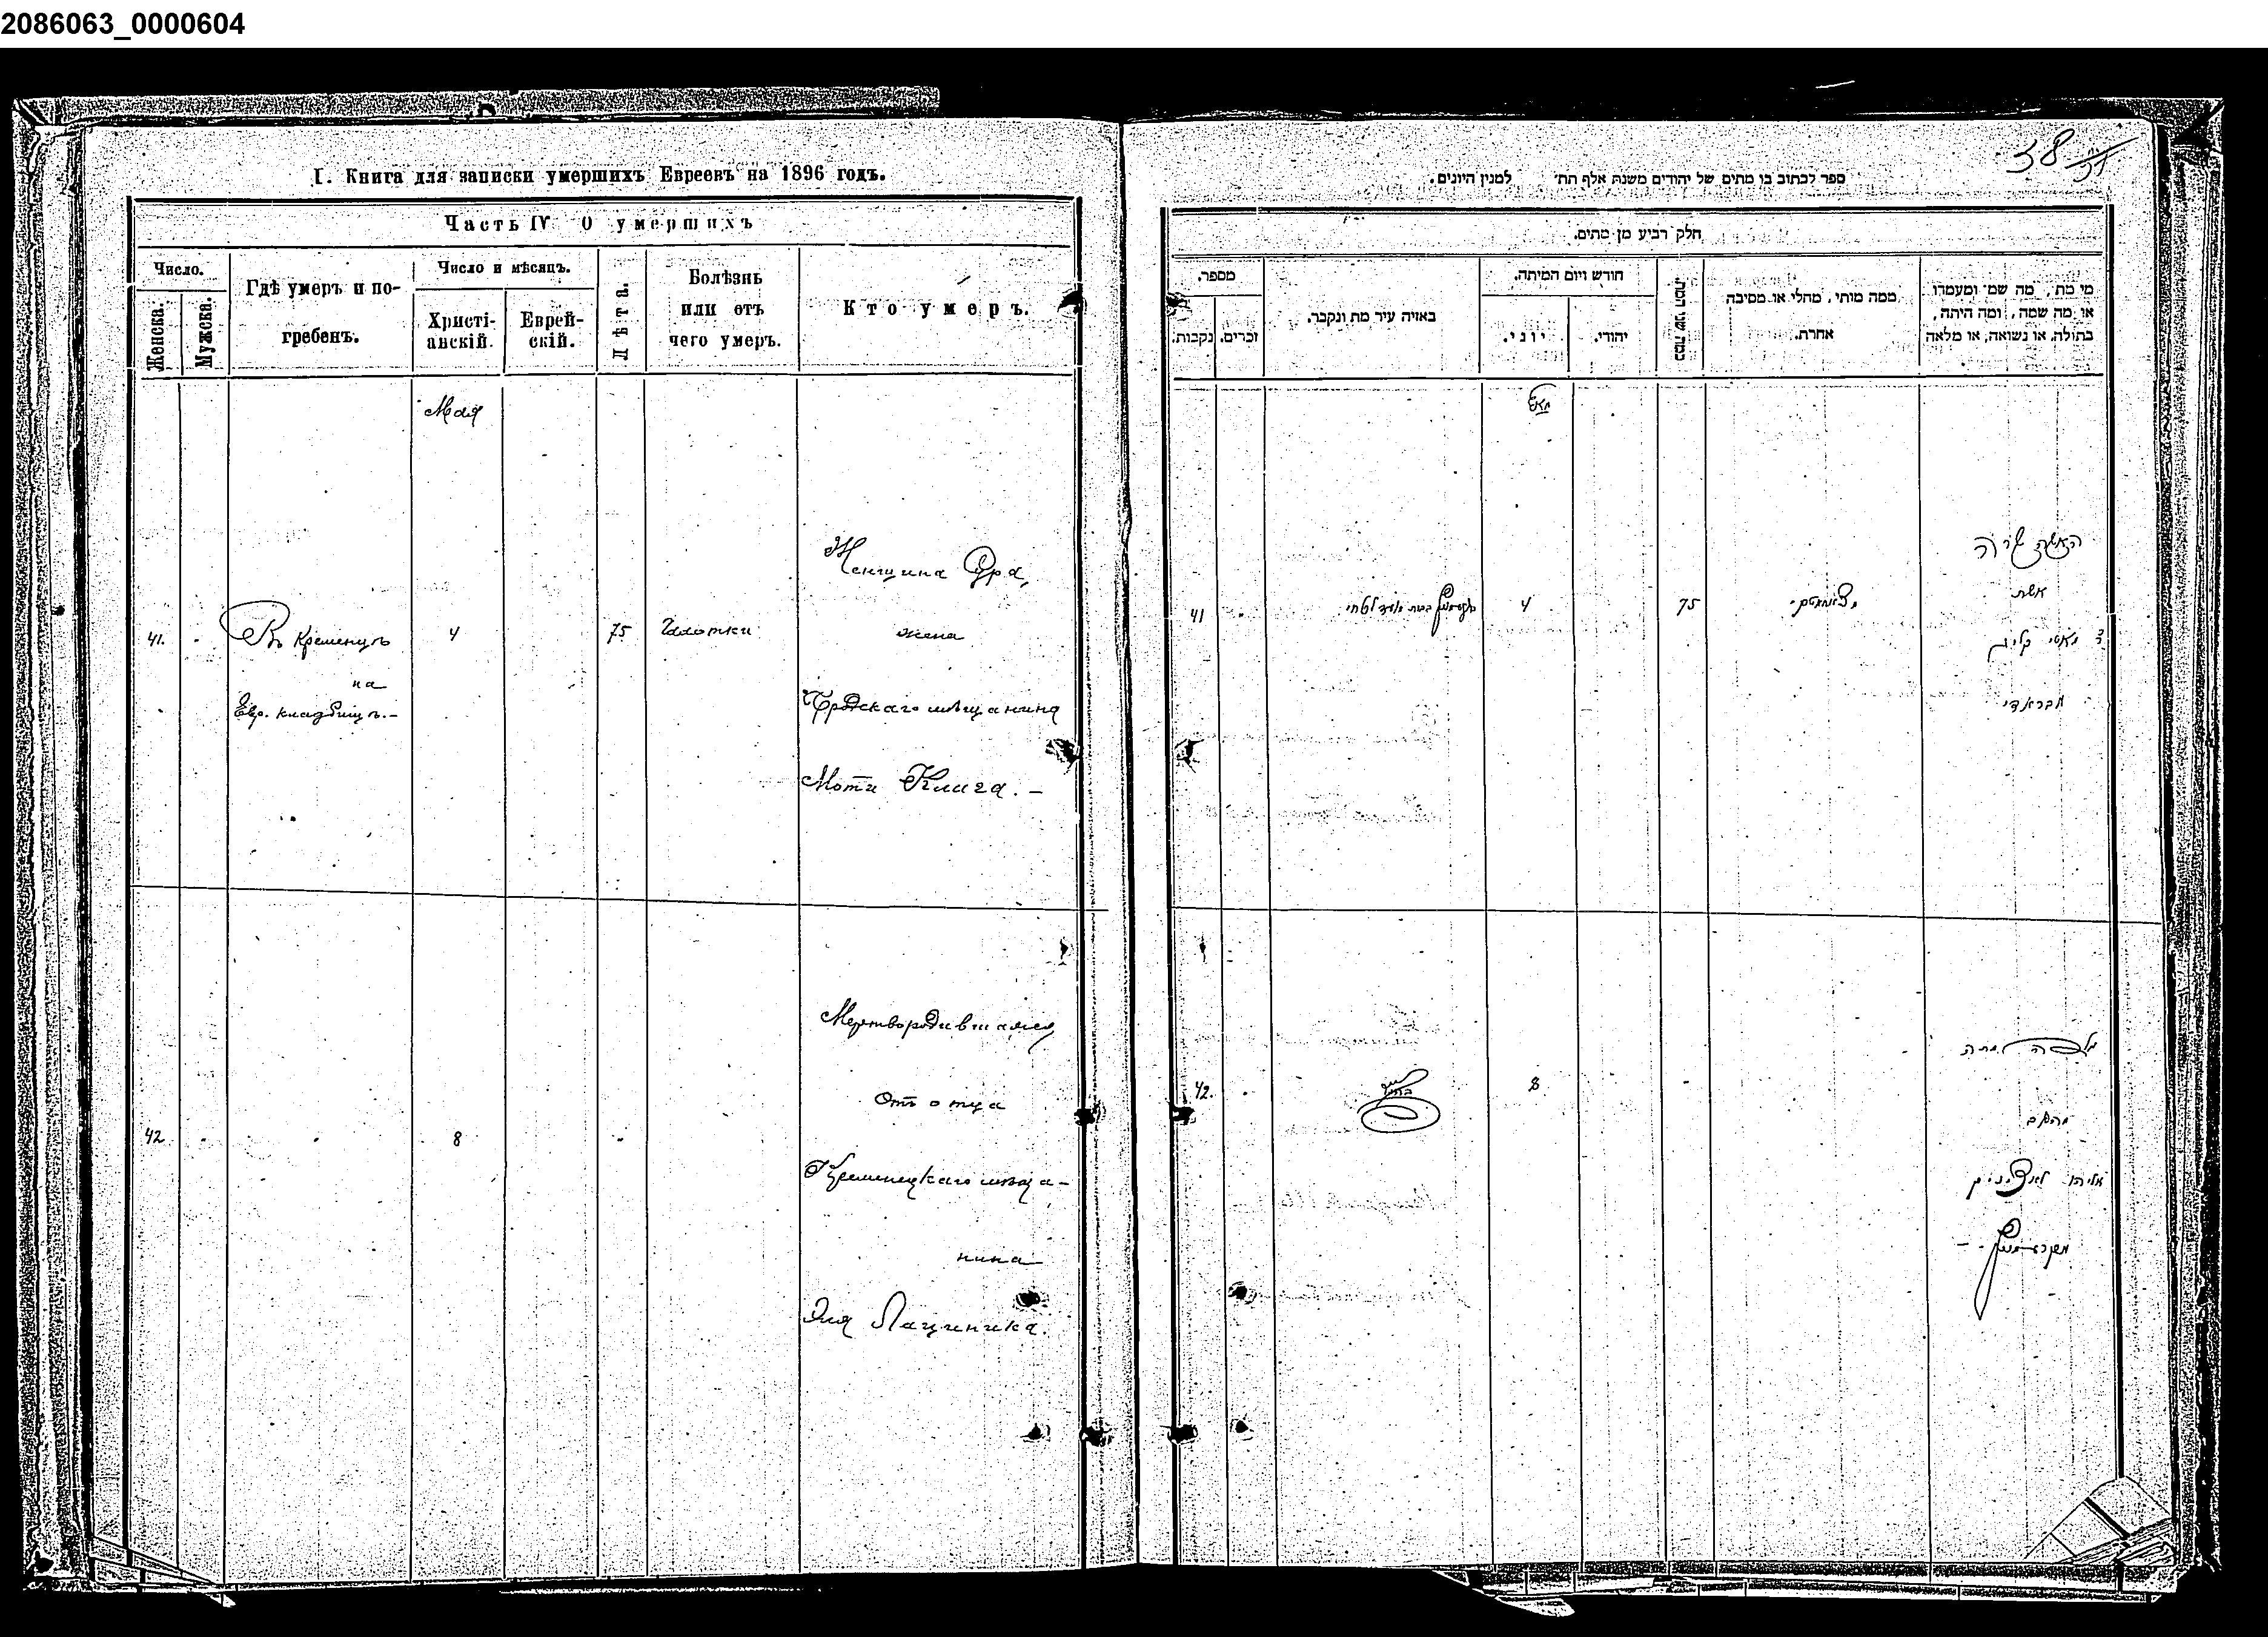 2086063_0000604
I. Книга для записки умершихъ Евреевъ на 1896 годъ.
Часть IV О умершихъ
Число.
Женска.
Мужска.
Гдѣ умеръ и по-
гребенъ.
Число и мѣсяцъ.
Христі-
анскій.
Еврей-
скій.
Лѣта.
Болѣзнь
или отъ
чего умеръ.
Кто умеръ.
Мая
41.
Въ Кременцѣ
на
Евр. кладбищѣ.–
4
75
Чахотки
Женщина Сура,
жена
Бродскаго мѣщанина
Моти Клига.–
42
8
Мертвородившаяся
Отъ отца
Кременецкаго мѣща-
нина
Эля Лациника.
38
ספר לכתוב בו מתים של יהודים משנת אלף תת׳ למנין היונים.
חלק רביע מן מתים.
מספר.
נקבות.
זכרים.
באיזה עיר מת ונקבר.
חודש ויום המיתה.
יוני.
יהודי.
כמה שני המת
ממה מותי, מחלי או מסיבה
אחרת.
מי מת, מה שמו ומעמדו
או מה שמה, ומה היתה,
בתולה, או נשואה, או מלאה
מאי
41
4
75
האשה שרה
אשת
מאטי קליג
מבראדי
42.
8
אליהו לאציניק
מקרעמעניץ